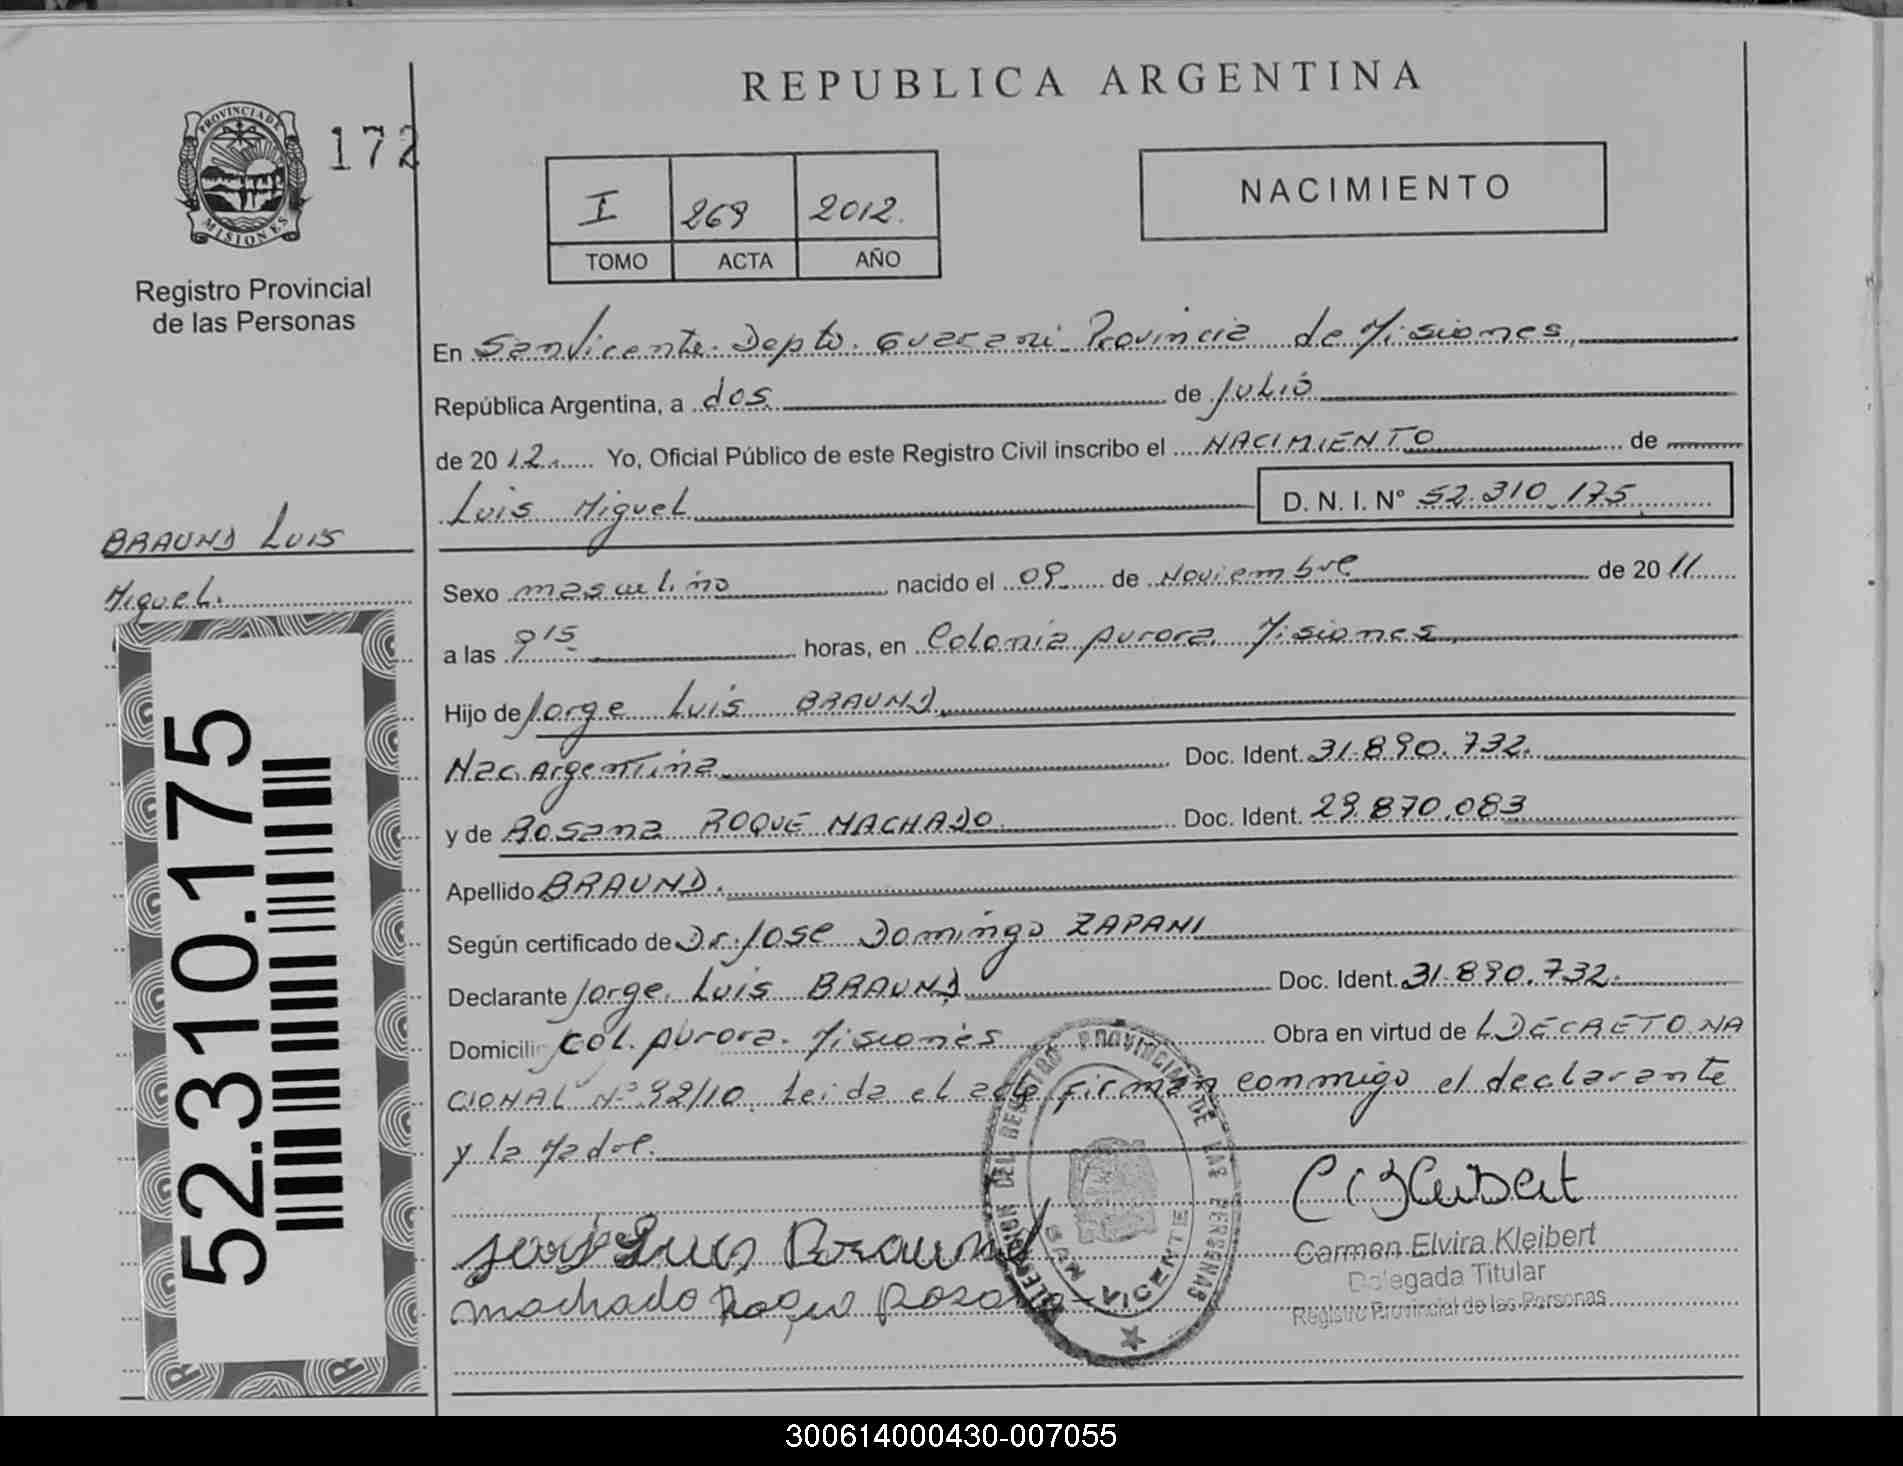 REPUBLICA ARGENTINA
PROVINCIA DE
MISIONES
172
Registro Provincial
de las Personas
I 269 2012.
TOMO ACTA AÑO
NACIMIENTO
En San Vicente. Depto. Guarani Provincia de Misiones,
República Argentina, a dos de Julio
de 2012. Yo, Oficial Público de este Registro Civil inscribo el NACIMIENTO de
Luis Miguel D. N. I. N° 52.310.175
BRAUND Luis
Miguel.
Sexo masculino nacido el 09 de Noviembre de 2011
a las 9 15 horas, en Colonia Aurora, Misiones
Hijo de Jorge Luis BRAUND
Nac. Argentina Doc. Ident. 31.890.732.
y de Rosana ROQUE MACHADO Doc. Ident. 29.870.083
Apellido BRAUND.
Según certificado de Dr. Jose Domingo ZAPANI
Declarante Jorge Luis BRAUND Doc. Ident. 31.890.732.
Domicili Col. Aurora. Misiones Obra en virtud de DECRETO NA
CIONAL Nº 92/10. Leida el acta firman conmigo el declarante
y la Madre.
52.310.175
DELEGACION DEL REGISTRO PROVINCIAL DE LAS PERSONAS
SAN VICENTE
Jorge Luis Braund
machado Roque Rosana
Carmen Elvira Kleibert
Delegada Titular
Registro Provincial de las Personas
300614000430-007055